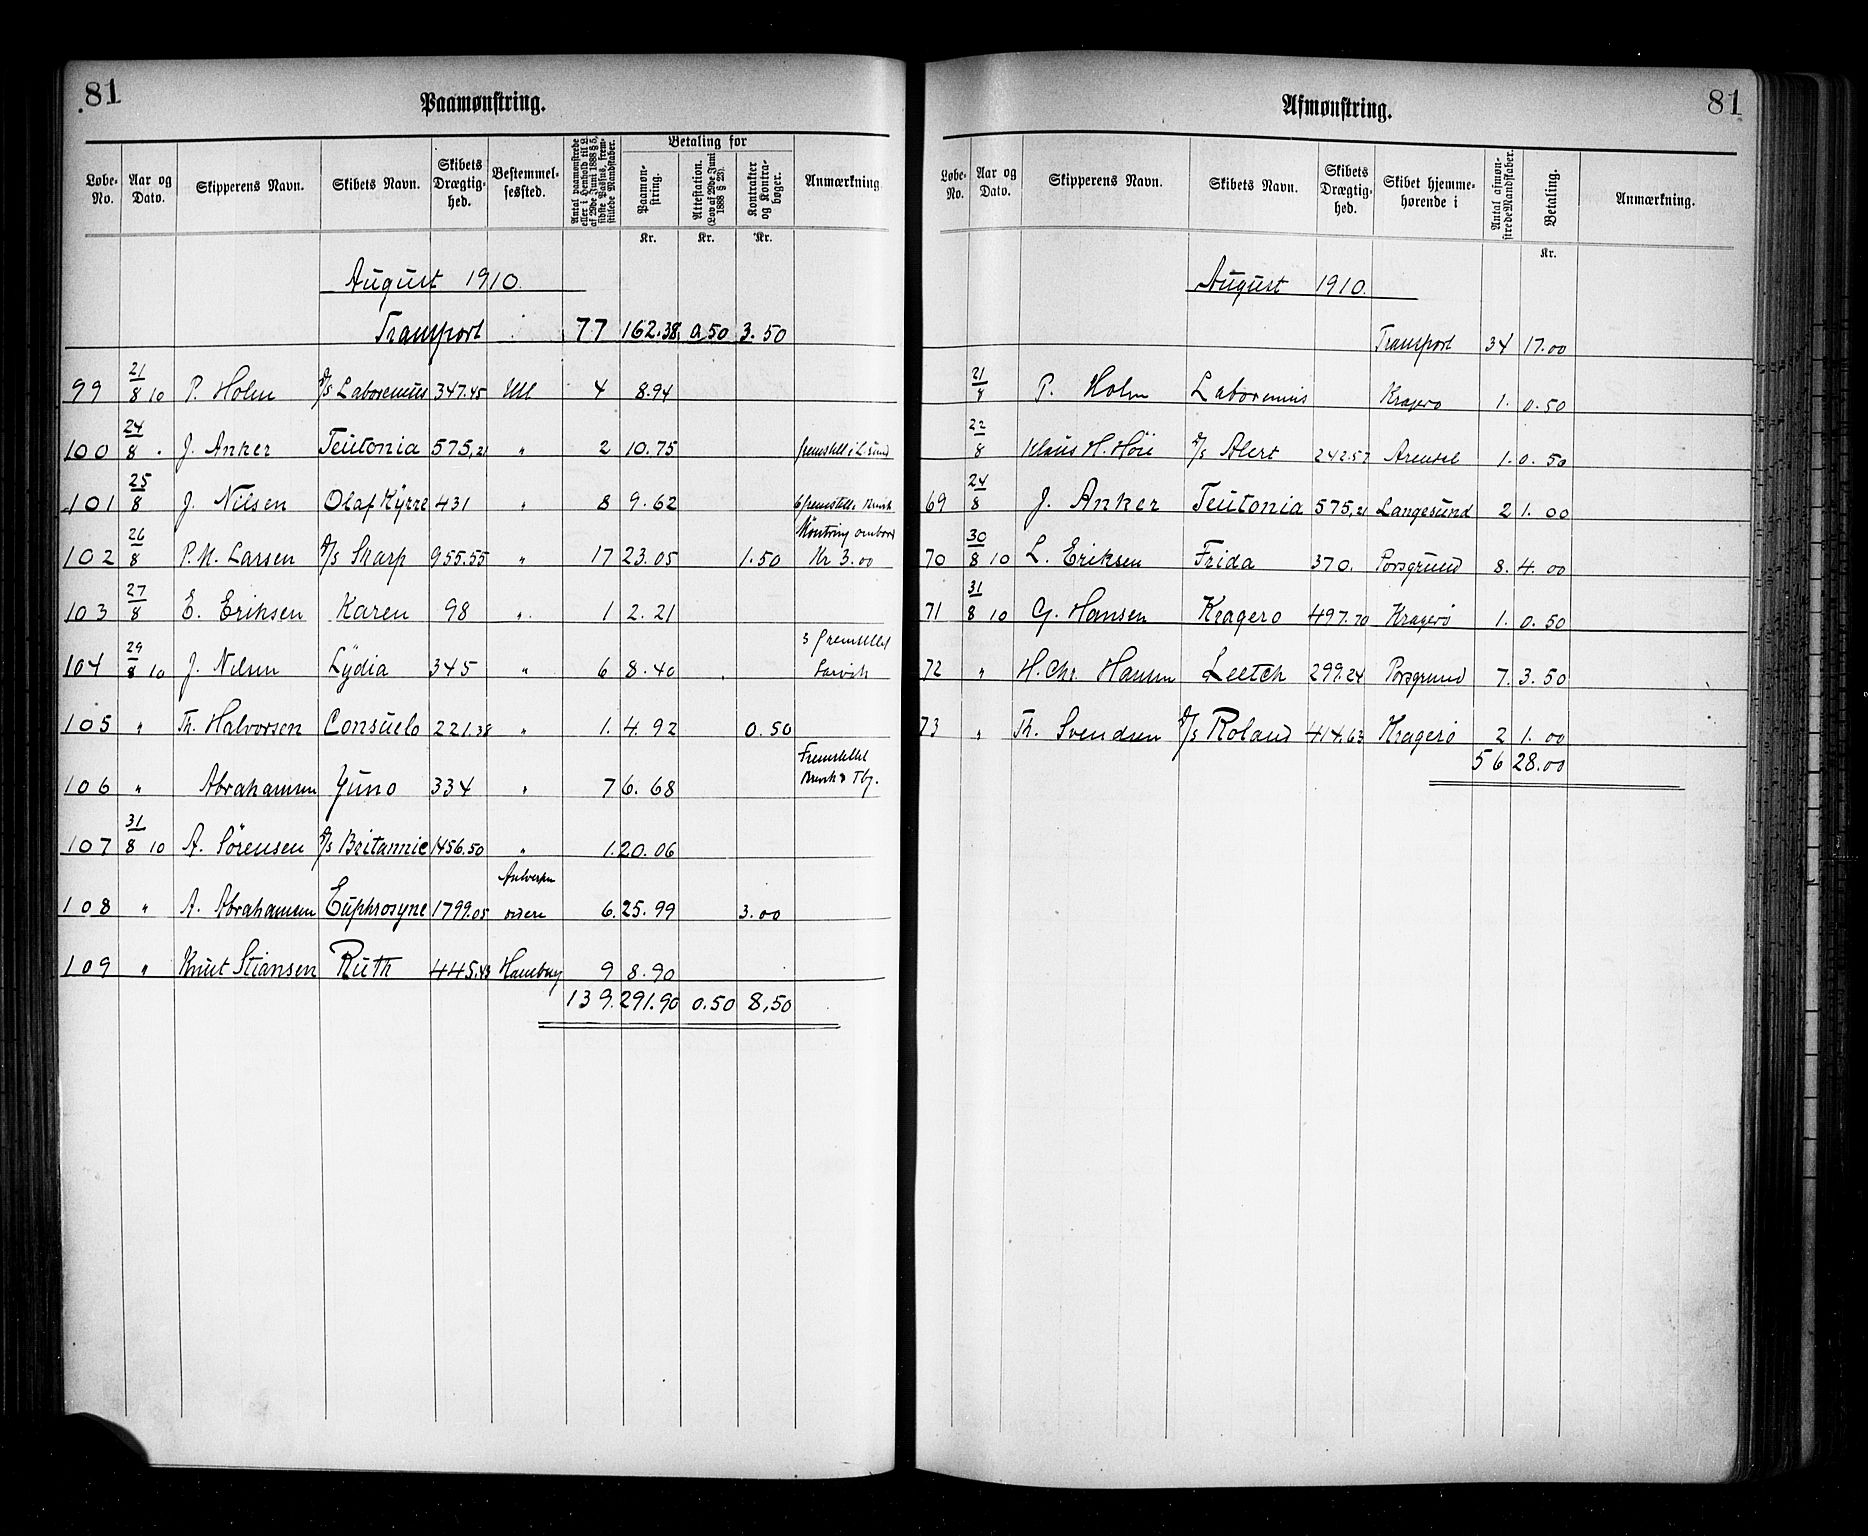 81
Paamønstring.
Løbe-No. Aar og Dato. Skipperens Navn. Skibets Navn. Skibets Drægtighed. Bestemmelsessted. Antal paamønstrede eller i Henhold til L. af 29de Juni 1888 § 5, sidste Passus, fremstillede Mandskaber. Betaling for Paamønstring. Attestation. (Lov af 29de Juni 1888 § 25). Kontrakter og Kontrabøger. Anmærkning.
Kr. Kr. Kr.
August 1910.
Transport 77 162.38 0,50 3.50
99 21/8 10 P. Holm S/S Laboremus 347.45 Udl 4 8.94
100 24/8 J. Anker Teutonia 575,21 " 2 10.75 fremstill i L.sund
101 25/8 J. Nilsen Olaf Kyrre 431 " 8 9.62 6 fremstill. Brvik
102 26/8 P. M. Larsen S/S Skarp 955.55 " 17 23.05 1.50 Mønstring ombord Kr 3.00
103 27/8 E. Eriksen Karen 98 " 1 2.21
104 29/8 10 J. Nilsen Lydia 345 " 6 8.40 3 fremstillet Larvik
105 " Th. Halvorsen Consuelo 221.38 " 1. 4.92 0.50
106 " Abrahamsen Juno 334 " 7 6.68 Fremstillet Brvik & Tbg.
107 31/8 10 A. Sörensen S/S Britannic 1456.50 " 1. 20.06
108 " A. Abrahamsen Euphrosyne 1799.05 Antverpen 6. 25.99 3.00
109 " Knut Stiansen Ruth 445.43 Hamburg 9 8.90
139. 291.90 0.50 8,50
81
Afmønstring.
Løbe-No. Aar og Dato. Skipperens Navn. Skibets Navn. Skibets Drægtighed. Skibet hjemmehørende i Antal afmønstrede Mandskaber. Betaling. Anmærkning.
Kr.
August 1910.
Transport 34 17.00
21/8 P. Holm Laboremus Kragerø 1. 0.50
22/8 Klaus H. Höie S/S Alert 242.57 Arendal 1. 0.50
69 24/8 J. Anker Teutonia 575,21 Langesund 2 1.00
70 30/8 10 L. Eriksen Frida 370. Porsgrund 8. 4.00
71 31/8 10 G. Hansen Kragerø 497.70 Kragerø 1. 0.50
72 " H. Chr. Hansen Leetch 299.24 Porsgrund 7. 3.50
73 " Th. Svendsen S/S Roland 414.63 Kragerø 2 1.00
56 28.00